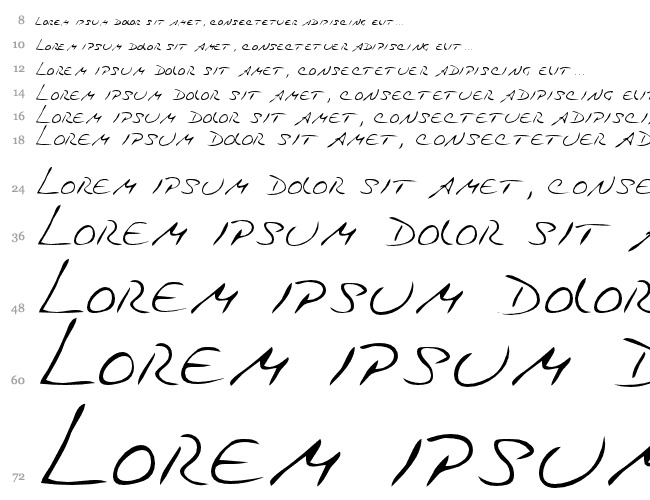 8 Lorem ipsum Dolor sit amet, consectetuer adipiscing elit...
10 Lorem ipsum Dolor sit amet, consectetuer adipiscing elit...
12 Lorem ipsum Dolor sit amet, consectetuer adipiscing elit...
14 Lorem ipsum Dolor sit amet, consectetuer adipiscing elit
16 Lorem ipsum Dolor sit amet, consectetuer adipisci
18 Lorem ipsum Dolor sit amet, consectetuer ad
24 Lorem ipsum Dolor sit amet, conse
36 Lorem ipsum Dolor sit
48 Lorem ipsum Dolor
60 Lorem ipsum D
72 Lorem ipsum